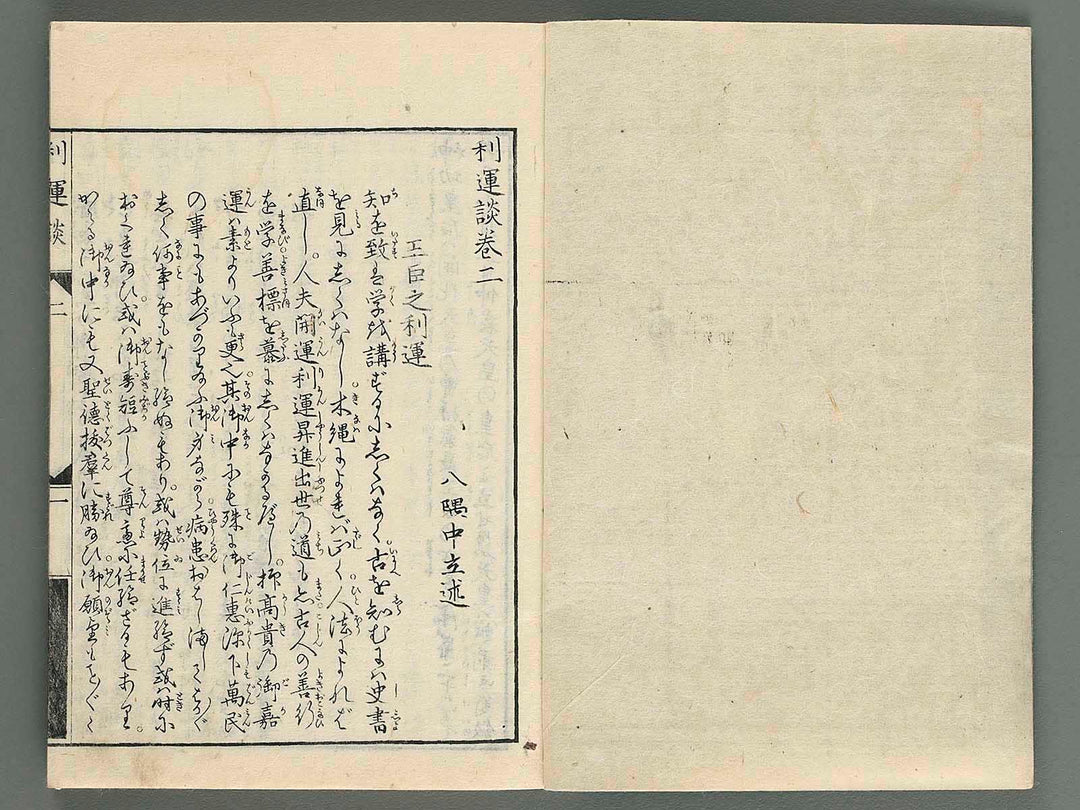 利運談巻二
王臣之利運
八隅中立述
知を致すは学を講ずるにしくはなく古を知むには史書
を見るにしくはなし木縄によれば正しく人法によれば
直し人夫開運利運昇進出世乃道も古人の善行
を学善標を慕にしくはなかるべし抑高貴乃御嘉
運は素よりいふも更也其御中にも殊に御仁恵深下萬民
の事にもあづかり給ふ御方ながら病患おはし
しく何事をもなし給ぬもあり或は勢位に進給ず或は時に
給ひ或は御寿短ふして尊慮に任給ざるもあり
かゝる御中にも又聖徳抜羣に勝給ひ御願望もことごとく
利運談
二
一